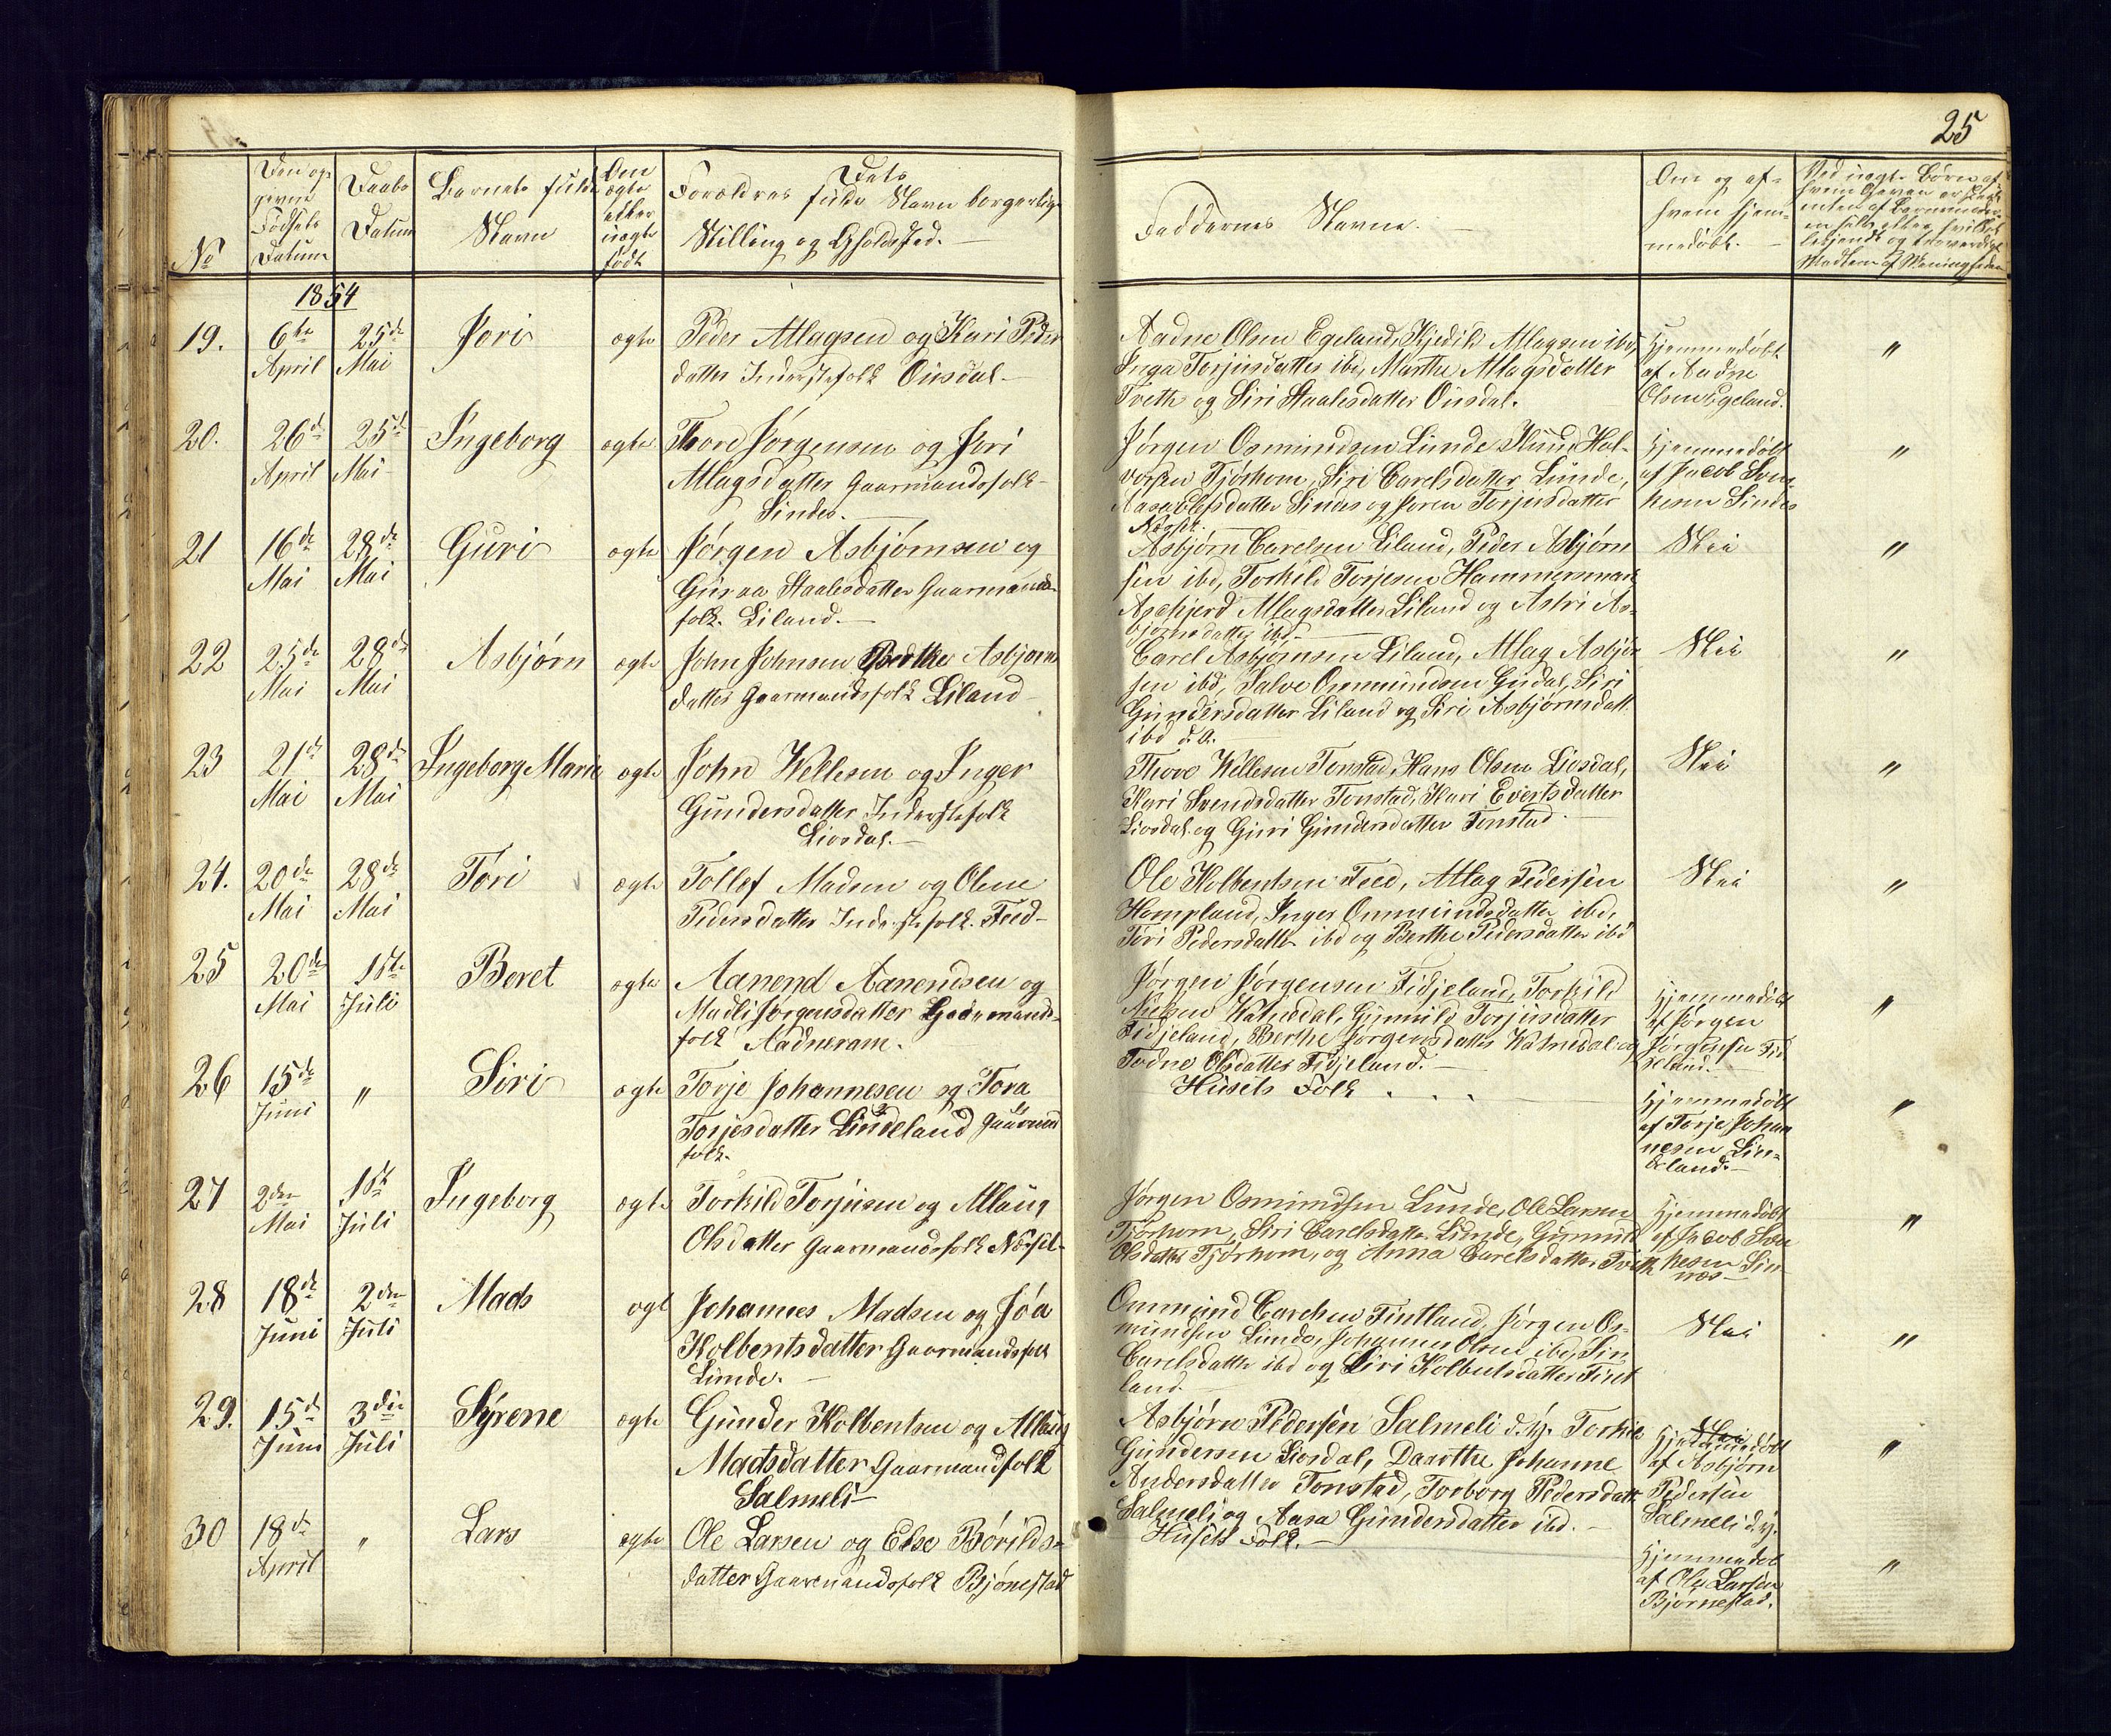 25
No
Den op-
givne
Fødsels
Datum
Daabs
Datum
Barnets fulde
Navn
Om
ægte
eller
uægte
født
Dets
Forældres fulde Navn borgerlige
Stilling og Opholdsted.
Faddernes Navne.
Om og af
hvem hjem-
medøbt.
1854
19.
6te
April
25de
Mai
Jori
ægte
Peder Atlagsen og Kari Peder
datter Inderstefolk Ousdal
Aadne Olsen Egeland, Kjedik Atlagsen ibd,
Inga Torjusdatter ibd, Marthe Atlagsdatter
Tveth og Siri Staalesdatter Ousdal.
Hjemmedøbt
af Aadne
Olsen Egeland.
"
20.
26d
April
25d
Mai
Ingeborg
ægte
Thore Jørgensen og Jori
Atlagsdatter Gaarmandsfolk
Sindes.
Jørgen Osmundsen Lunde, Knud Hal-
vorsen Tjørhom, Siri Carelsdatter Lunde,
Aasa Olefsdatter Sindes og Joren Torjusdatter
Nesset.
Hjemmedøbt
af Jacob Sven-
kesen Sindes
"
21
16de
Mai
28de
Mai
Guri
ægte
Jørgen Asbjørnsen og
Guroa Staalesdatter Gaarmands-
folk. Liland.
Asbjørn Carelsen Liland, Peder Asbjørn
sen ibd, Torkild Torjesen Hammersmark
Asbjerd Atlagsdatter Liland og Astri As-
bjørnsdatter ibd.
Nei
"
22
25de
Mai
28de
Mai
Asbjørn
ægte
John Johnsen Berthe Asbjørns
datter Gaarmandsfolk Liland
Carel Asbjørnsen Liland, Atlag Asbjør
sen ibd, Salve Ommundsen Gudal, Siri
Gundersdatter Liland og Siri Asbjørnsdatt.
ibd d.æ.
Nei
"
23
21d
Mai
28de
Mai
Ingeborg Marie
ægte
John Wellesen og Inger
Gundersdatter Inderstefolk
Liosdal.
Thore Wellesen Tonstad, Hans Olsen Liosdal,
Kari Svendsdatter Tonstad, Kari Evertsdatter
Liosdal og Guri Gundersdatter Tonstad.
Nei
"
24.
20de
Mai
28de
Mai
Tori
ægte
Tollef Madsen og Olene
Pedersdatter Inderstefolk. Feed
Ole Kolbentsen Feed, Atlag Pedersen
Hompland, Inger Ommundsdatter ibd,
Tori Pedersdatter ibd og Berthe Pedersdatter ibd
Nei
"
25
20de
Mai
1ste
Juli
Beret
ægte
Aanend Aanendsen og
Madli Jørgensdatter Gaarmands-
folk Aadneram.
Jørgen Jørgensen Fidjeland, Torkild
Nielsen Watnedal, Gunnild Torjusdatter
Fidjeland, Berthe Jørgensdatter Watnedal og
Todne Olsdatter Fidjeland.
Hjemmedøbt
af Jørgen
Jørgensen Fid
jeland.
"
26
15de
Juni
"
Siri
ægte
Torje Johannesen og Tora
Torjesdatter Lindeland Gaarmands
folk.
Husets Folk . . .
Hjemmedøbt
af Torje Johan
nesen Lin-
deland.
"
27
2den
Mai
1ste
Juli
Ingeborg
ægte
Torkild Torjusen og Atlaug
Olsdatter Gaarmandsfolk Næsset
Jørgen Osmundsen Lunde, Ole Larsen
Tjørhom, Siri Carelsdatter Lunde, Gunnild
Olsdatter Tjørhom, og Anna Carelsdatter Tveth
Hjemmedøbt
af Jacob Sven
kesen Sin-
nes
"
28
18de
Juni
2den
Juli
Mads
ægt
Johannes Madsen og Jóa
Kolbentsdatter Gaarmandsfolk
Lunde.
Ommund Carelsen Fintland, Jørgen Os-
mundsen Lunde, Johannes Olsen ibd, Siri
Carelsdatter ibd og Siri Kolbentsdatter Fint
land.
Nei
"
29.
15d
Juni
3die
Juli
Syrene
ægte
Gunder Kolbentsen og Atlaug
Madsdatter Gaarmandfolk
Salmeli
Asbjørn Pedersen Salmeli d.y. Torkel
Gundersen Liosdal, Daarthe Johanne
Andersdatter Tonstad, Torborg Pedersdatt.
Salmeli og Aasa Gundersdatter ibd.
Hjemmedøbt
af Asbjørn
Pedersen
Salmeli d.y.
"
30
18de
April
"
Lars
ægte
Ole Larsen og Else Børilds-
datter Gaarmandsfolk Bjønestad
Husets Folk.
Hjemmedøb
af Ole Larsen
Bjørnestad.
"